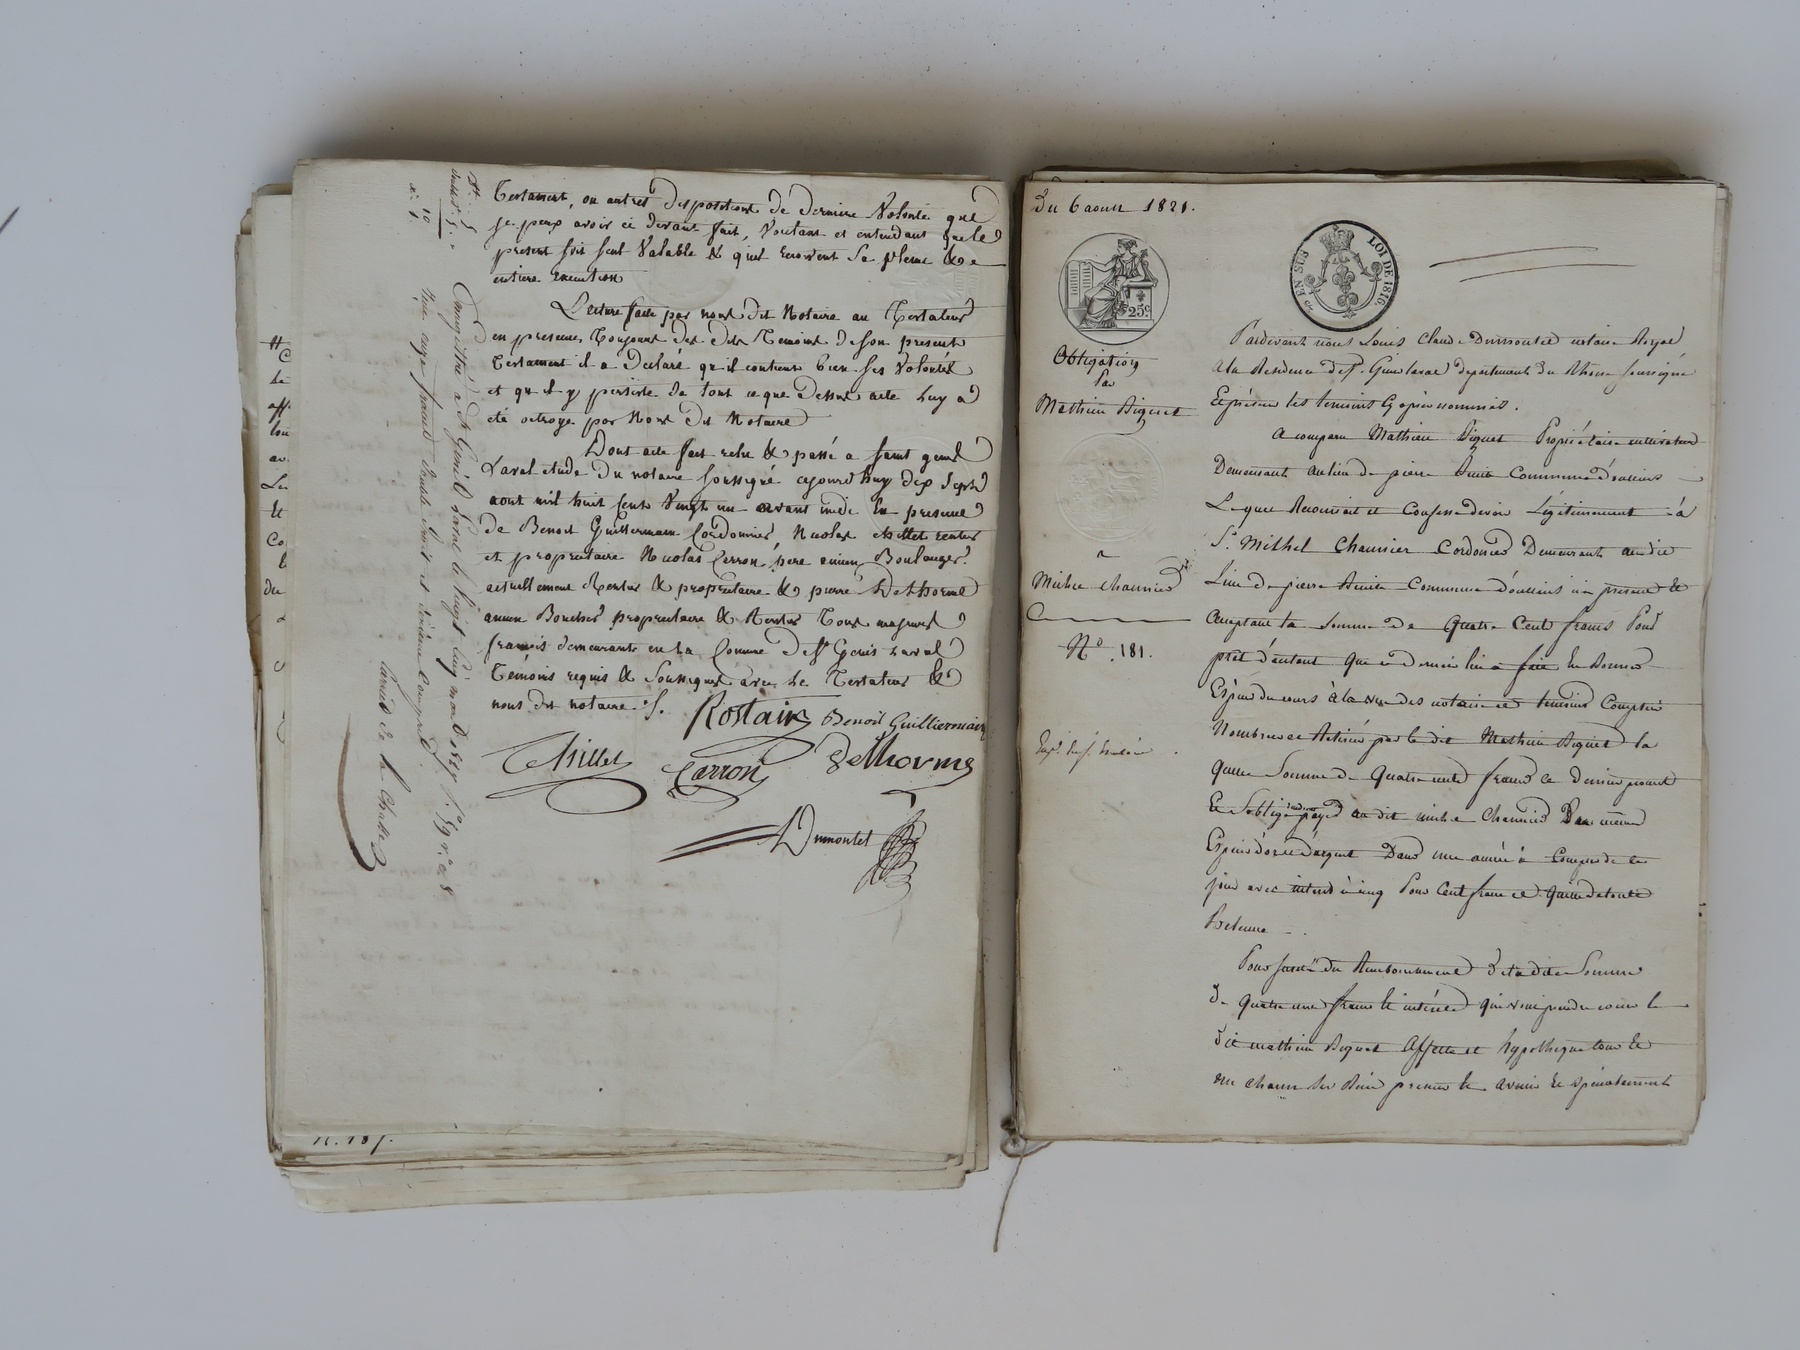 Testament, ou autres dispositions de derniere Volonté que
je peux avoir ci devant fait, Voulant et entendant que le
present soit seul Valable & quil recoivent Sa pleine & 
entiere execution
Lecture faite par nous dit Notaire au Testateur
en presence Toujours des dits Temoins de son present
Testament il a Declaré qu'il contient bien ses Volontés
et qu il y persiste de tout ce que Dessus acte Luy a
été octroyé par Nous dit Notaire
Dont acte fait relu & passé a saint genis
Laval etude du notaire soussigné aujourd huy dix Sept
aout mil huit cent Vingt un avant midi En presence
de Benoit Guillermain Cordonnier, Nicolas chillet rentier
et proprietaire Nicolas Carron pere ancien Boulanger
actuellement Rentier & proprietaire & pierre Delhorme
ancien Boucher proprietaire & Rentier Tous majeurs
francais demeurants en la Comune de St Genis Laval
Témoins requis & Soussignés avec Le Testateur &
nous dit notaire
Rostain Benoit Guilliermain
Chillet Carron Delhorme
Dumontet
Enregistré à St Genis Laval le Vingt cinq
Reçu onze francs
N. 181.
Du 6 aout 1821.
25c
EN SUS LOI DE 1816.
Obligation
Par
Mathieu Biguet
à
Michel Chaunier
N° 181.
Pardevant nous Louis Claude Dumontet notaire Royal
à la Residence de St. Genis laval departement du Rhone soussigné
Et présens les temoins Cy après nommés.
A comparu Mathieu Biguet Propriétaire cultivateur
Demeurant au lieu de pierre Benite Commune d'oullins
Lequel Reconnoit et Confesse devoir Légitimement à
Sr. Michel Chaunier Cordonier Demeurant au dit
Lieu de pierre Benite Commune d'oullins ici présent &
acceptant la Somme de Quatre Cent francs Pour
prêt d'autant que ce dernier lui a fait En Bonnes
Espèces du cours à la vue des notaire et temoins Comptée
Nombrée et Retirée par le dit Mathieu Biguet la
quelle Somme de Quatre cents francs ce dernier promet
Et S'oblige payer au dit Michel Chaunier En mêmes
Espèces d'or et d'argent Dans une année à Compter de ce
jour avec interet à cinq Pour Cent franc et quitte de toute
Retenue
Pour sureté du Remboursement de la dite Somme
De quatre cent francs & intérets qui vont prendre cours le
dit mathieu Biguet Affecte et hypotheque tous &
un chacun Ses Biens présens & avenir Et spécialement